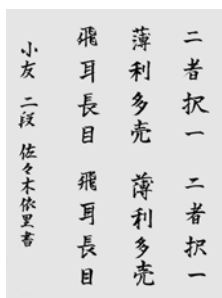 二者択一 二者択一
薄利多売 薄利多売
飛耳長目 飛耳長目
小友 二段 佐々木依里書